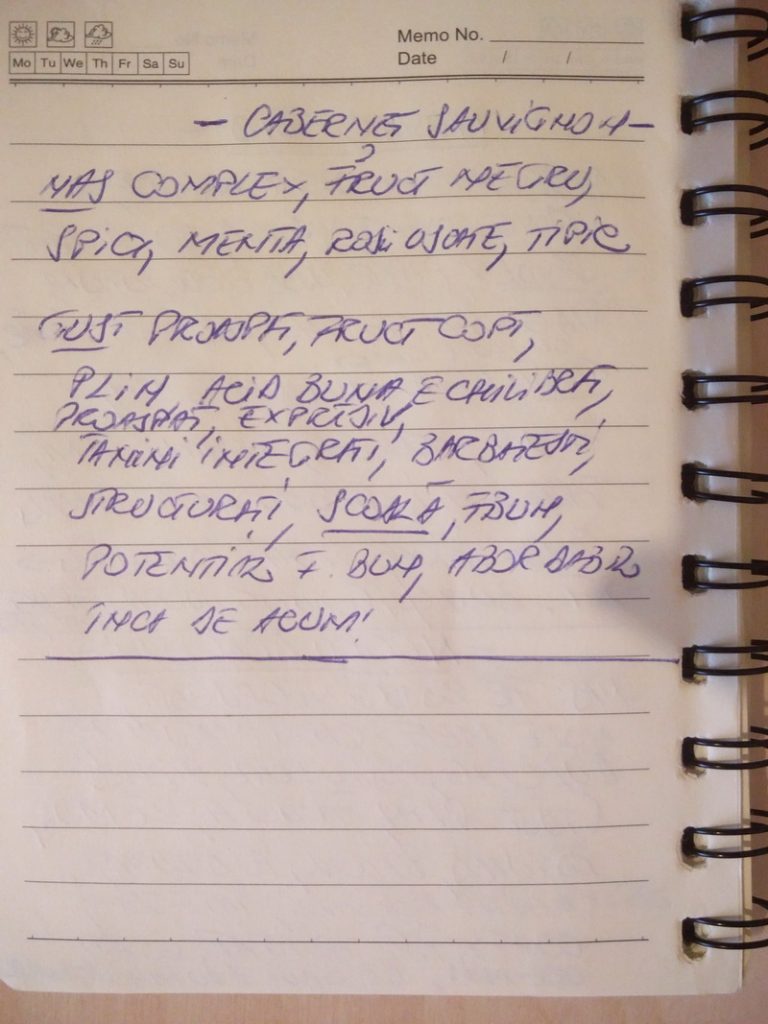 Memo No.
Mo Tu We Th Fr Sa Su
Date / /
- CABERNET SAUVIGNON -
NAS COMPLEX, FRUCT NEGRU,
SPICY, MENTA, ROSII USCATE, TIPIC
GUST PROASPAT, FRUCT COPT,
PLIN, ACID BUNA, ECHILIBRAT,
PROASPAT, EXPRESIV,
TANINI INTEGRATI, BARBATESTI,
STRUCTURATI, SCOALĂ, F BUN,
POTENTIAL F. BUN, ABORDABIL
INCA DE ACUM!